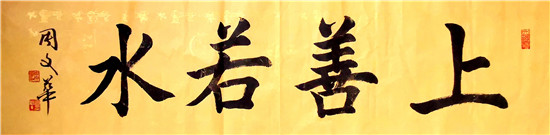 上善若水
周文華